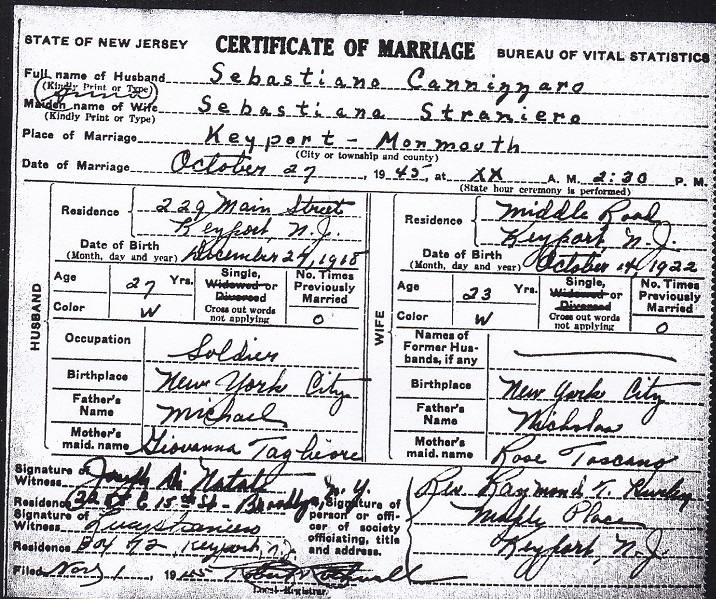 STATE OF NEW JERSEY CERTIFICATE OF MARRIAGE BUREAU OF VITAL STATISTICS
Full name of Husband Sebastiano Cannizzaro
(Kindly Print or Type)
Maiden name of Wife Sebastiana Straniero
(Kindly Print or Type)
Place of Marriage Keyport - Monmouth
(City or township and county)
Date of Marriage October 27, 1945, at XX A. M. 2:30 P. M.
(State hour ceremony is performed)
HUSBAND
Residence 229 Main Street
Keyport, N.J.
Date of Birth
(Month, day and year) December 27, 1918
Age 27 Yrs.
Color W
Single, Widowed or Divorced
Cross out words not applying
No. Times Previously Married
0
Occupation Soldier
Birthplace New York City
Father's Name Michael
Mother's maid. name Giovanna Tagliere
WIFE
Residence Middle Road
Keyport, N.J.
Date of Birth
(Month, day and year) October 14, 1922
Age 23 Yrs.
Color W
Single, Widowed or Divorced
Cross out words not applying
No. Times Previously Married
0
Names of Former Husbands, if any
Birthplace New York City
Father's Name Nicholas
Mother's maid. name Rose Toscano
Signature of Witness Joseph Di Natale
Residence E 15th St - Brooklyn, N.Y.
Signature of Witness Lucy Straniero
Residence Box 92, Keyport, N.J.
Signature of person or officer of society officiating, title and address.
Rev. Raymond T.
Maple Place
Keyport, N.J.
Filed Nov 1, 1945
Local Registrar.